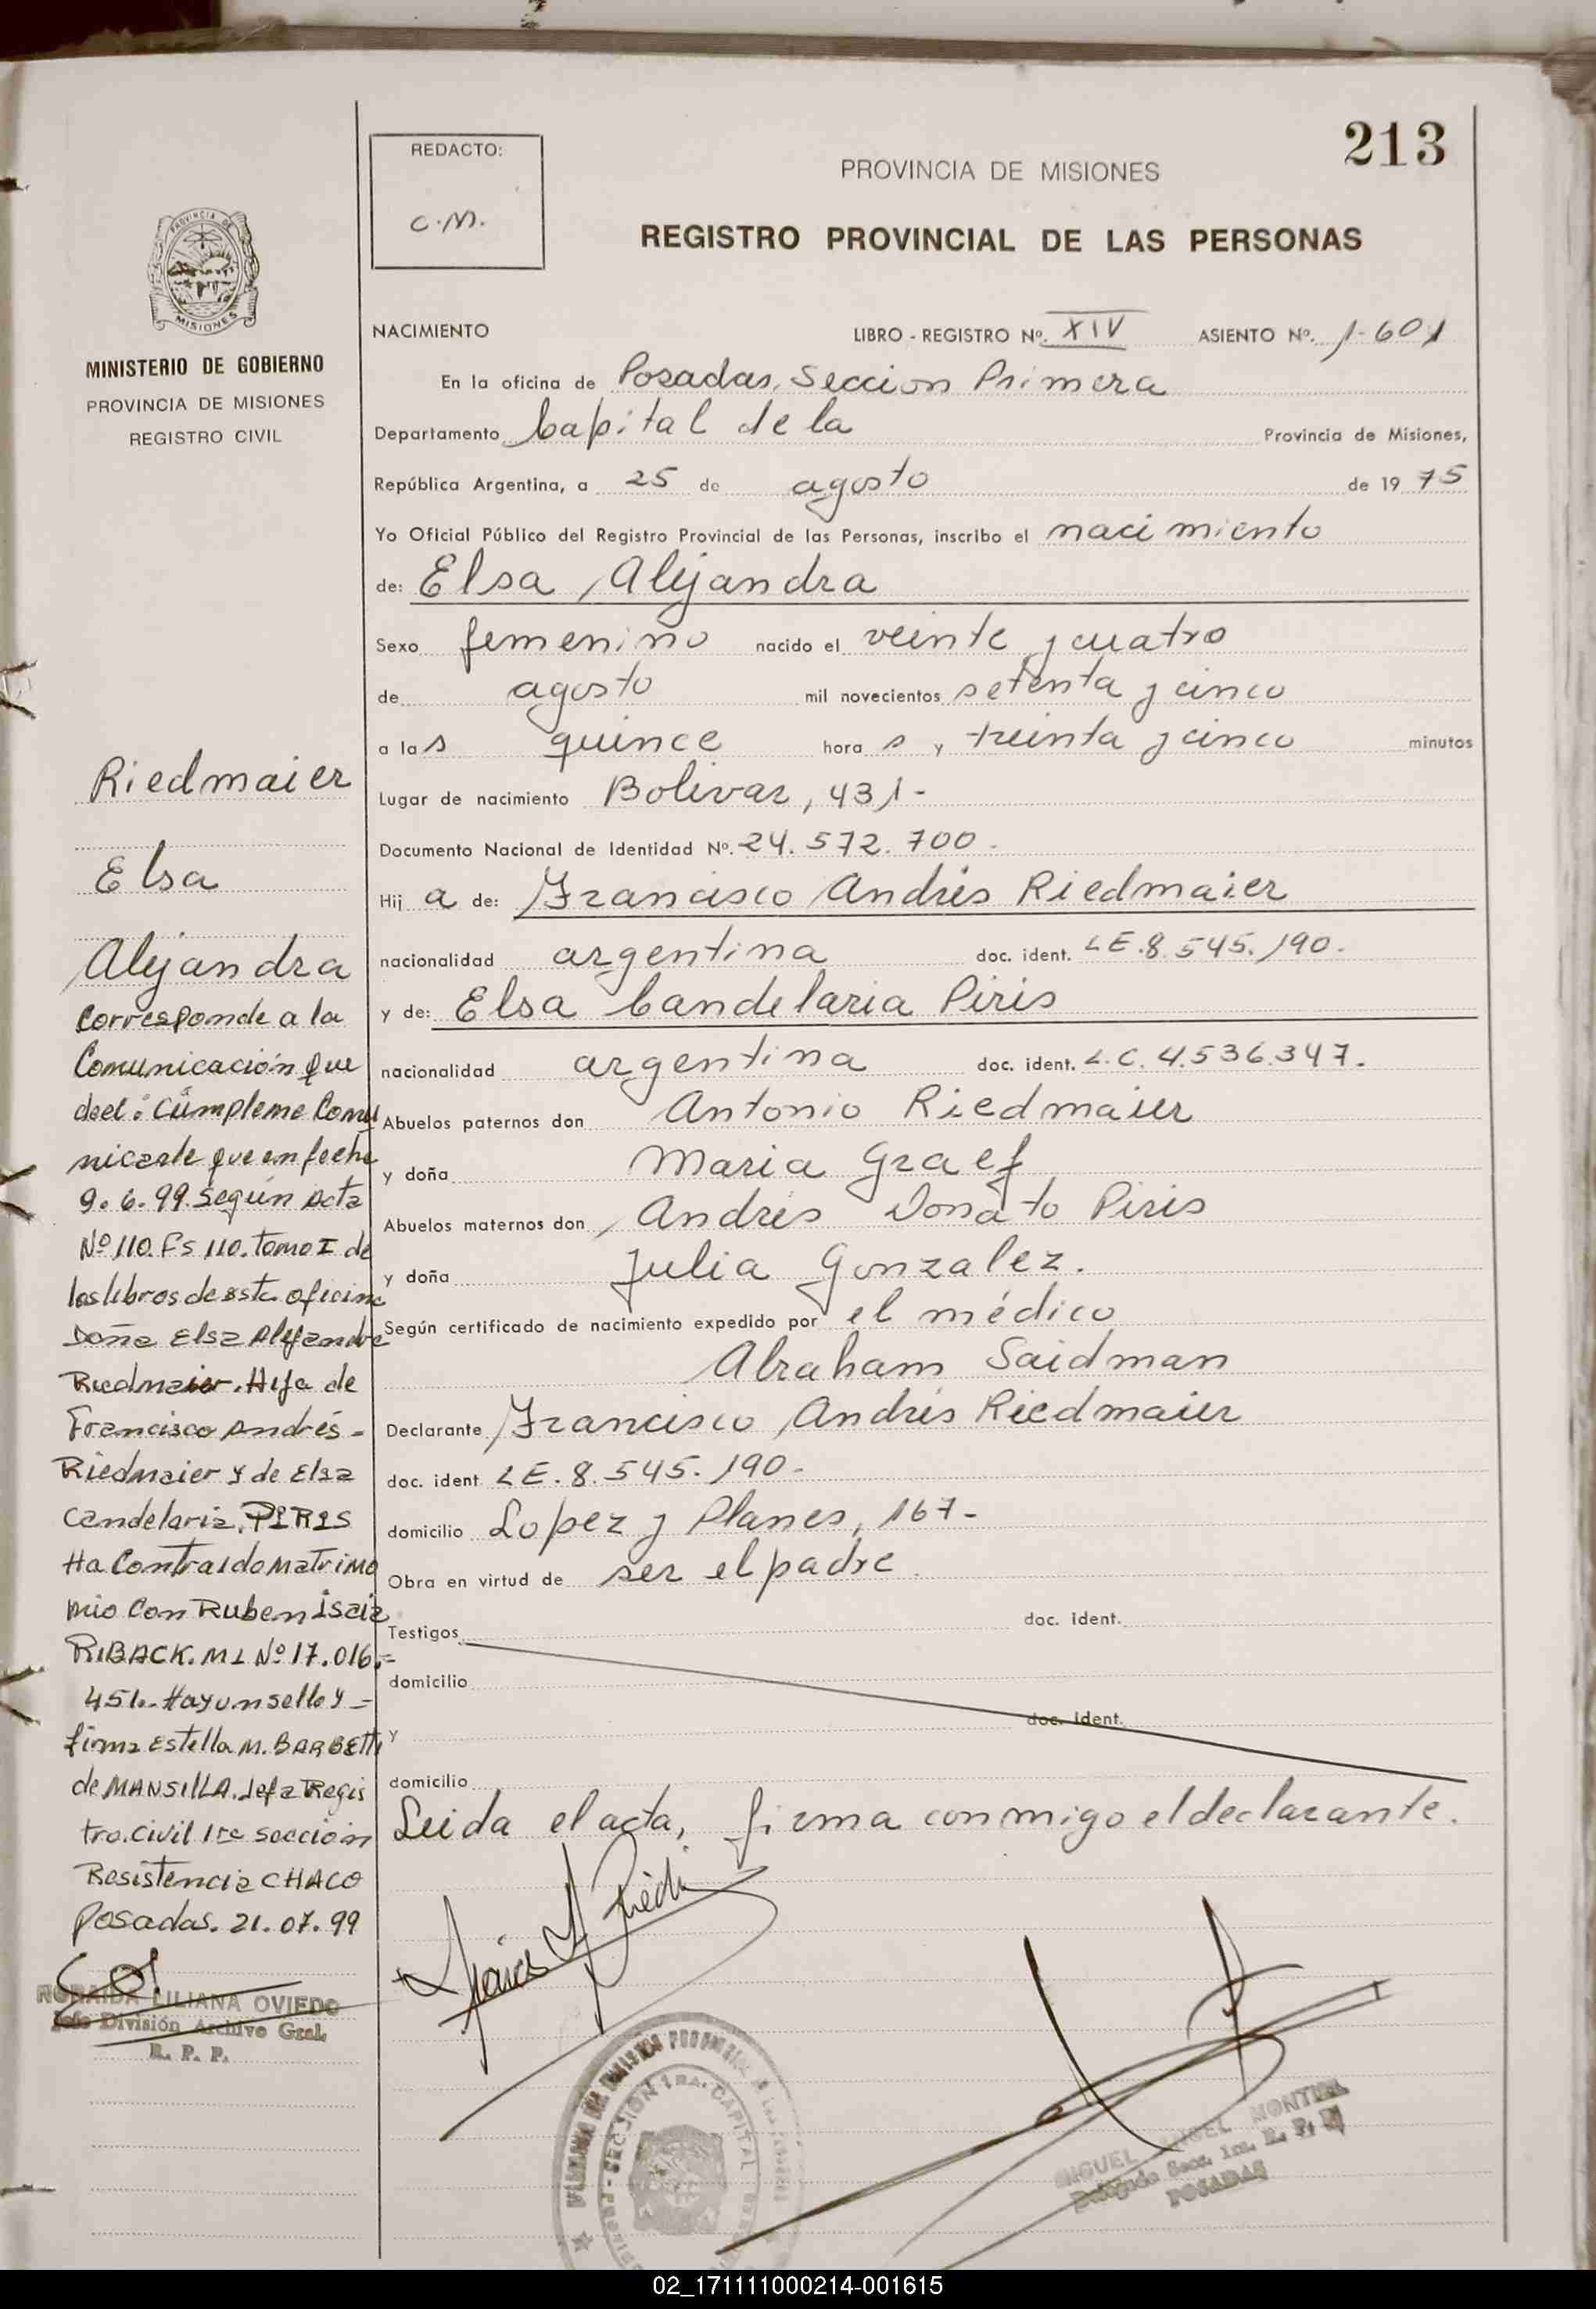 213
REDACTO:
C.M.
PROVINCIA DE MISIONES
REGISTRO PROVINCIAL DE LAS PERSONAS
PROVINCIA DE
MISIONES
MINISTERIO DE GOBIERNO
PROVINCIA DE MISIONES
REGISTRO CIVIL
NACIMIENTO LIBRO - REGISTRO Nº. XIV ASIENTO Nº. 1.601
En la oficina de Posadas, Seccion Primera
Departamento Capital de la Provincia de Misiones,
República Argentina, a 25 de agosto de 19 75
Yo Oficial Público del Registro Provincial de las Personas, inscribo el nacimiento
de: Elsa Alejandra
Sexo femenino nacido el veinte y cuatro
de agosto mil novecientos setenta y cinco
a las quince hora s y treinta y cinco minutos
Lugar de nacimiento Bolivar, 431-
Documento Nacional de Identidad Nº. 24.572.700.
Hij a de: Francisco Andrés Riedmaier
nacionalidad argentina doc. ident. LE.8.545.190.
y de: Elsa Candelaria Piris
nacionalidad argentina doc. ident. L.C. 4.536.347.
Abuelos paternos don Antonio Riedmaier
y doña Maria Graef
Abuelos maternos don Andrés Donato Piris
y doña Julia Gonzalez.
Según certificado de nacimiento expedido por el médico
Abraham Saidman
Declarante Francisco Andrés Riedmaier
doc. ident. LE.8.545.190-
domicilio Lopez y Planes, 167-
Obra en virtud de ser el padre.
Testigos doc. ident.
domicilio
y doc. ident.
domicilio
Leida el acta, firma conmigo el declarante.
Riedmaier
Elsa
Alejandra
Corresponde a la
Comunicación que
dael: Cúmpleme Comu
nicarle que en fecha
9.6.99. Según Acta
Nº 110. Fs 110. tomo I de
los libros de esta oficina
Doña Elsa Alejandra
Riedmaier. Hija de
Francisco Andrés-
Riedmaier y de Elsa
Candelaria. PIRIS
Ha Contraido Matrimo
nio Con Ruben Isaia
RIBACK. MI Nº 17.016.-
451.- Hay un sello y -
firma Estella M. BARBETTI
de MANSILLA. Jefa Regis
tro. Civil 1ra sección
Resistencia CHACO
Posadas. 21.07.99
LILIANA OVIEDO
Jefe División Archivo Gral.
R. P. P.
SECCION 1RA. CAPITAL
MIGUEL ANGEL MONTIEL
POSADAS
02_171111000214-001615